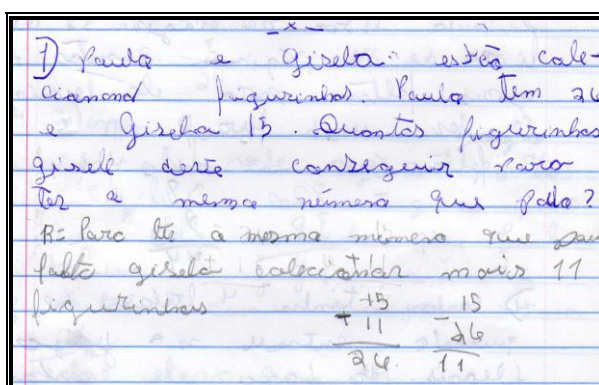 - x -
1) Paula e Gisela estão cole-
cionand figurinhas. Paula tem 26
e Gisela 15. Quantas figurinhas
gisele deve conseguir para
ter a mesma número que Pala?
R= Para te a mesma número que pau
falta gisela colecionar mais 11
figurinhas
15 15
+ 11 - 26
26. 11